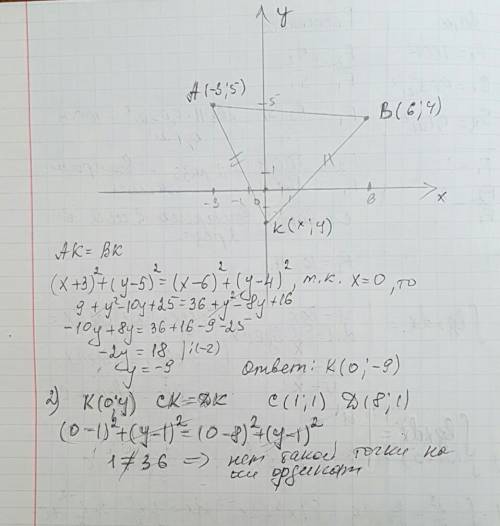 y
A(-3;5)
5
B(6;4)
1
-3 -1 0 1 6 x
K(x;y)
AK = BK
(x+3)² + (y-5)² = (x-6)² + (y-4)², т.к. x=0, то
9 + y² - 10y + 25 = 36 + y² - 8y + 16
-10y + 8y = 36 + 16 - 9 - 25
-2y = 18 |:(-2)
y = -9 Ответ: K(0;-9)
2) K(0;y) CK = DK C(1;1), D(8;1)
(0-1)² + (y-1)² = (0-8)² + (y-1)²
1 ≠ 36 => нет такой точки на
оси ординат